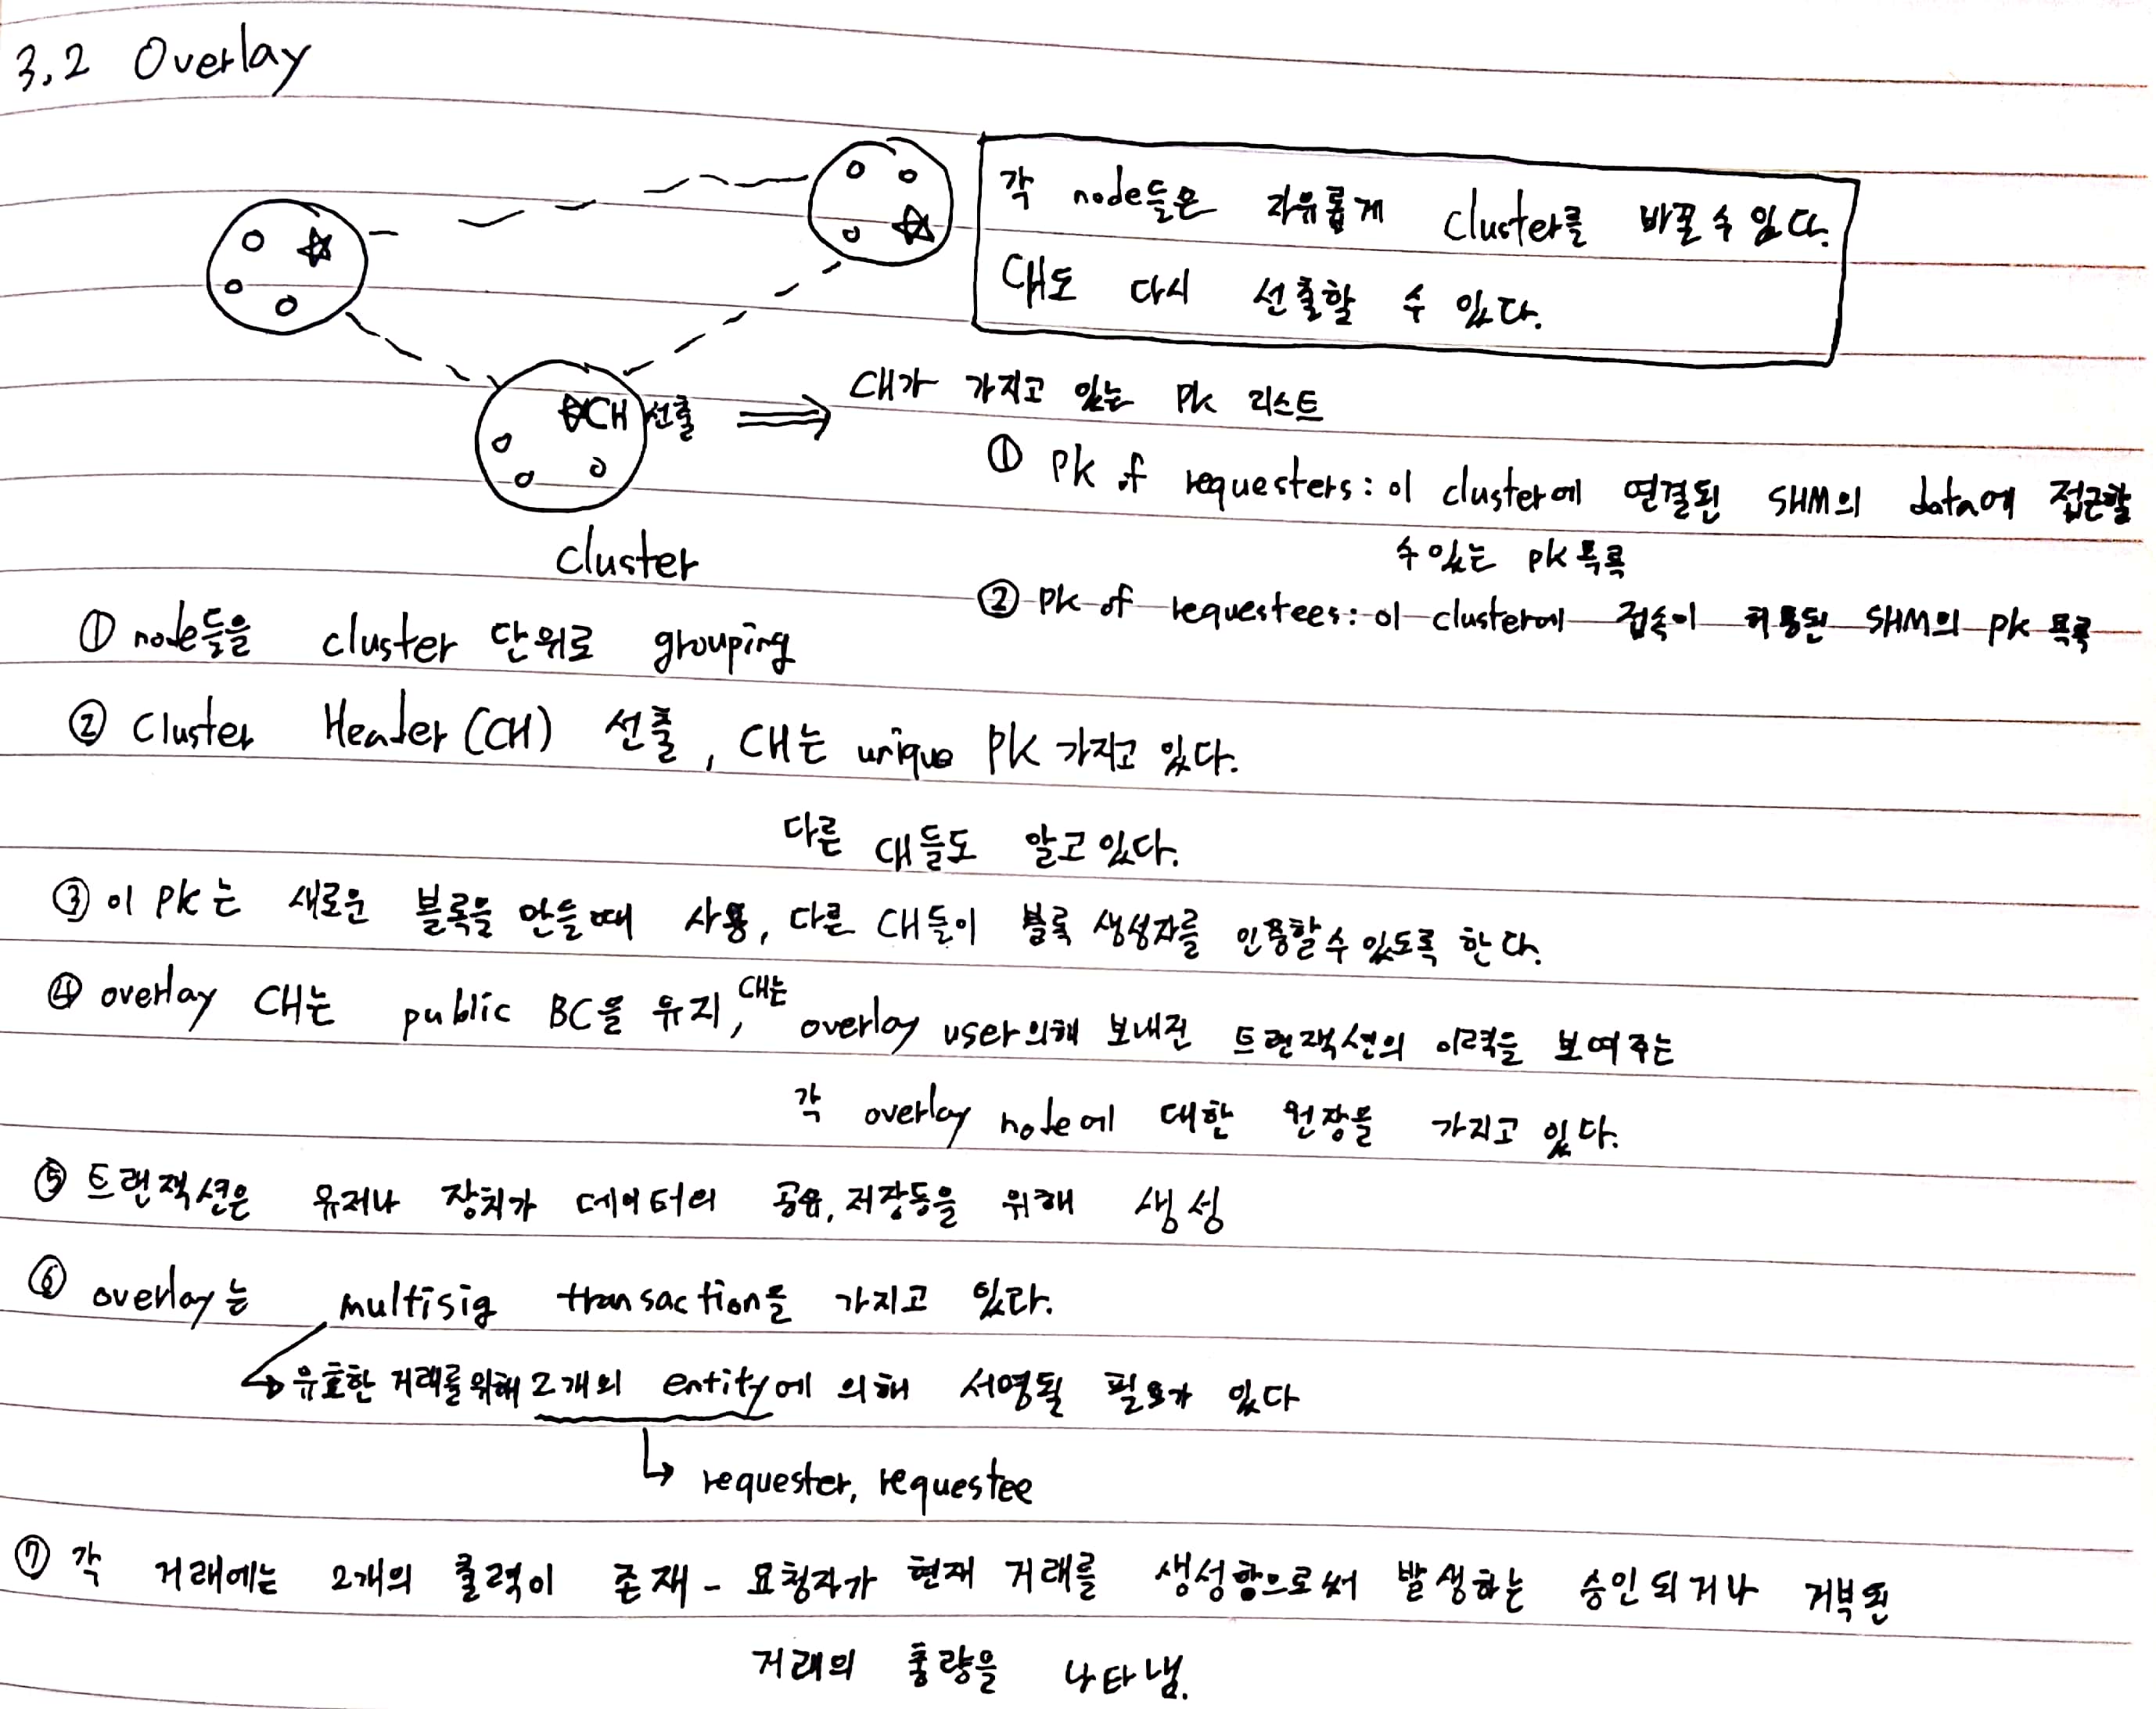 3.2 Overlay
각 node들은 자유롭게 cluster를 바꿀 수 있다.
CH도 다시 선출할 수 있다.
CH 선출 ⇒ CH가 가지고 있는 PK 리스트
① PK of requesters: 이 cluster에 연결된 SHM의 data에 접근할
수 있는 PK 목록
② PK of requestees: 이 cluster에 접속이 허용된 SHM의 PK 목록
cluster
① node들을 cluster 단위로 grouping
② Cluster Header (CH) 선출, CH는 unique PK 가지고 있다.
다른 CH들도 알고있다.
③ 이 PK는 새로운 블록을 만들때 사용, 다른 CH들이 블록 생성자를 인증할 수 있도록 한다.
④ overlay CH는 public BC을 유지, CH는 overlay user의해 보내진 트랜잭션의 이력을 보여주는
각 overlay node에 대한 원장을 가지고 있다.
⑤ 트랜잭션은 유저나 장치가 데이터의 공유, 저장등을 위해 생성
⑥ overlay는 multisig transaction을 가지고 있다.
↳ 유효한 거래를위해 2개의 entity에 의해 서명될 필요가 있다
↳ requester, requestee
⑦ 각 거래에는 2개의 출력이 존재 - 요청자가 현재 거래를 생성함으로써 발생하는 승인되거나 거부된
거래의 총량을 나타냄.